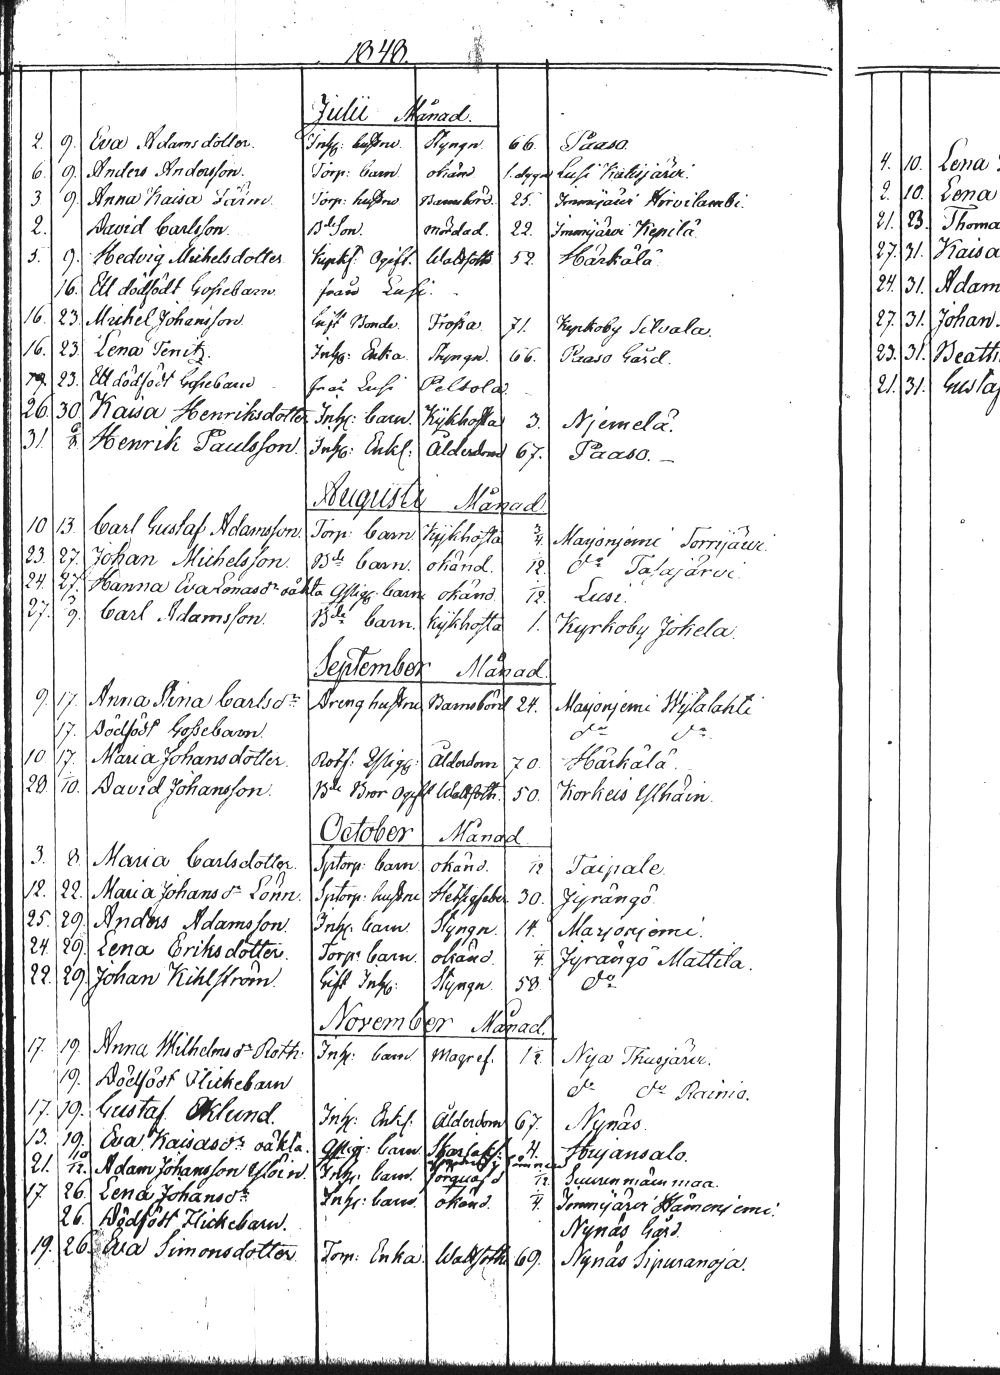 1848.
Julii Månad.
2. 9. Eva Adamsdotter. Inh: hustru Styngn 66. Paaso.
6. 9. Anders Andersson. Torp: barn okänd 1. dygn Lusi Kaksjärvi.
3 9. Anna Kaisa Torp: hustru Barnsbörd 25. Immjärvi Horvilambi.
2. David Carlsson. Dde Son. mördad. 22. Immjärvi Kepilä
5. 9. Hedvig Michelsdotter Ogift. Wattsott 52. Härkälä
16. Ett dödfödt Gossebarn från Lusi.
16. 23. Michel Johansson. Gift Bonde. Trossa. 71. Kyrkoby Sitvala.
16. 23. Lena Tenitz. Inh: Enka. Styngn. 66. Paaso Gård.
19. 23. Ett dödfödt Gossebarn från Lusi Peltola.
26. 30. Kaisa Henriksdotter Inh: barn Kykhosta 3. Njemelä.
31. 6/8. Henrik Paulsson. Inh: Enkl: Ålderdom 67. Paaso.
Augusti Månad
10 13. Carl Gustaf Adamsson. Torp: barn Kykhosta 3/4. Marjonjemi Torrijärvi.
23. 27. Johan Michelsson. Dde barn. okänd. 12. do Tasajärvi
24. 27. Hanna Eva Lenasdr oäkta barn okänd 12. Lusi.
27. 9. Carl Adamsson. Dde barn. kykhosta 1. Kyrkoby Jokela.
September Månad.
9. 17. Anna Stina Carlsdr Dreng hustru Barnsbörd 24. Marjonjemi Wytalahti
17. Dödfödt Gossebarn. do do
10 17. Maria Johansdotter. Rotf: Ålderdom 70. Härkälä.
28 10. David Johansson. Dde Bror Ogift Wattsoth. 50. Korkeis Ylhäin.
October Månad
3. 8. Maria Carlsdotter. Sptorp: barn okänd. 12 Taipale.
12. 22. Maria Johansdr Lönn. Sptorp: hustru Hetsigfeber 30. Jyrängö
25. 29. Anders Adamsson. Inh: barn Styngn. 14. Marjonjemi.
24. 29. Lena Eriksdotter. Torp: barn. okänd. 4. Jyrängö Mattila.
22. 29. Johan Kihlström. Gift Inh: Styngn 58. do
November Månad.
17. 19. Anna Wilhelmsdr Roth: Inh: barn Magref. 1 1/2. Nya Thusjärvi.
19. Dödfödt Flickebarn do do Rainio.
17. 19. Gustaf Eklund. Inh: Enkl. Ålderdom 67. Nynäs.
13. 19. Eva Kaisasdr oäkta. barn 4. Hujansalo.
21. 10/12. Adam Johansson Inh: barn 12. Suurenmäinmaa.
17 26. Lena Johansdr Inh: barn okänd. 4. Immjärvi Hämenjemi.
26. Dödfödt Flickebarn. Nynäs Gård.
19. 26. Eva Simonsdotter Torp: Enka. Wattsoth 69. Nynäs Sipuranoja.
4. 10. Lena
2. 10. Lena
21. 23. Thoma
27. 31. Kaisa
24. 31. Adam
27. 31. Johan
23. 31. Beatt
21. 31. Gustaf